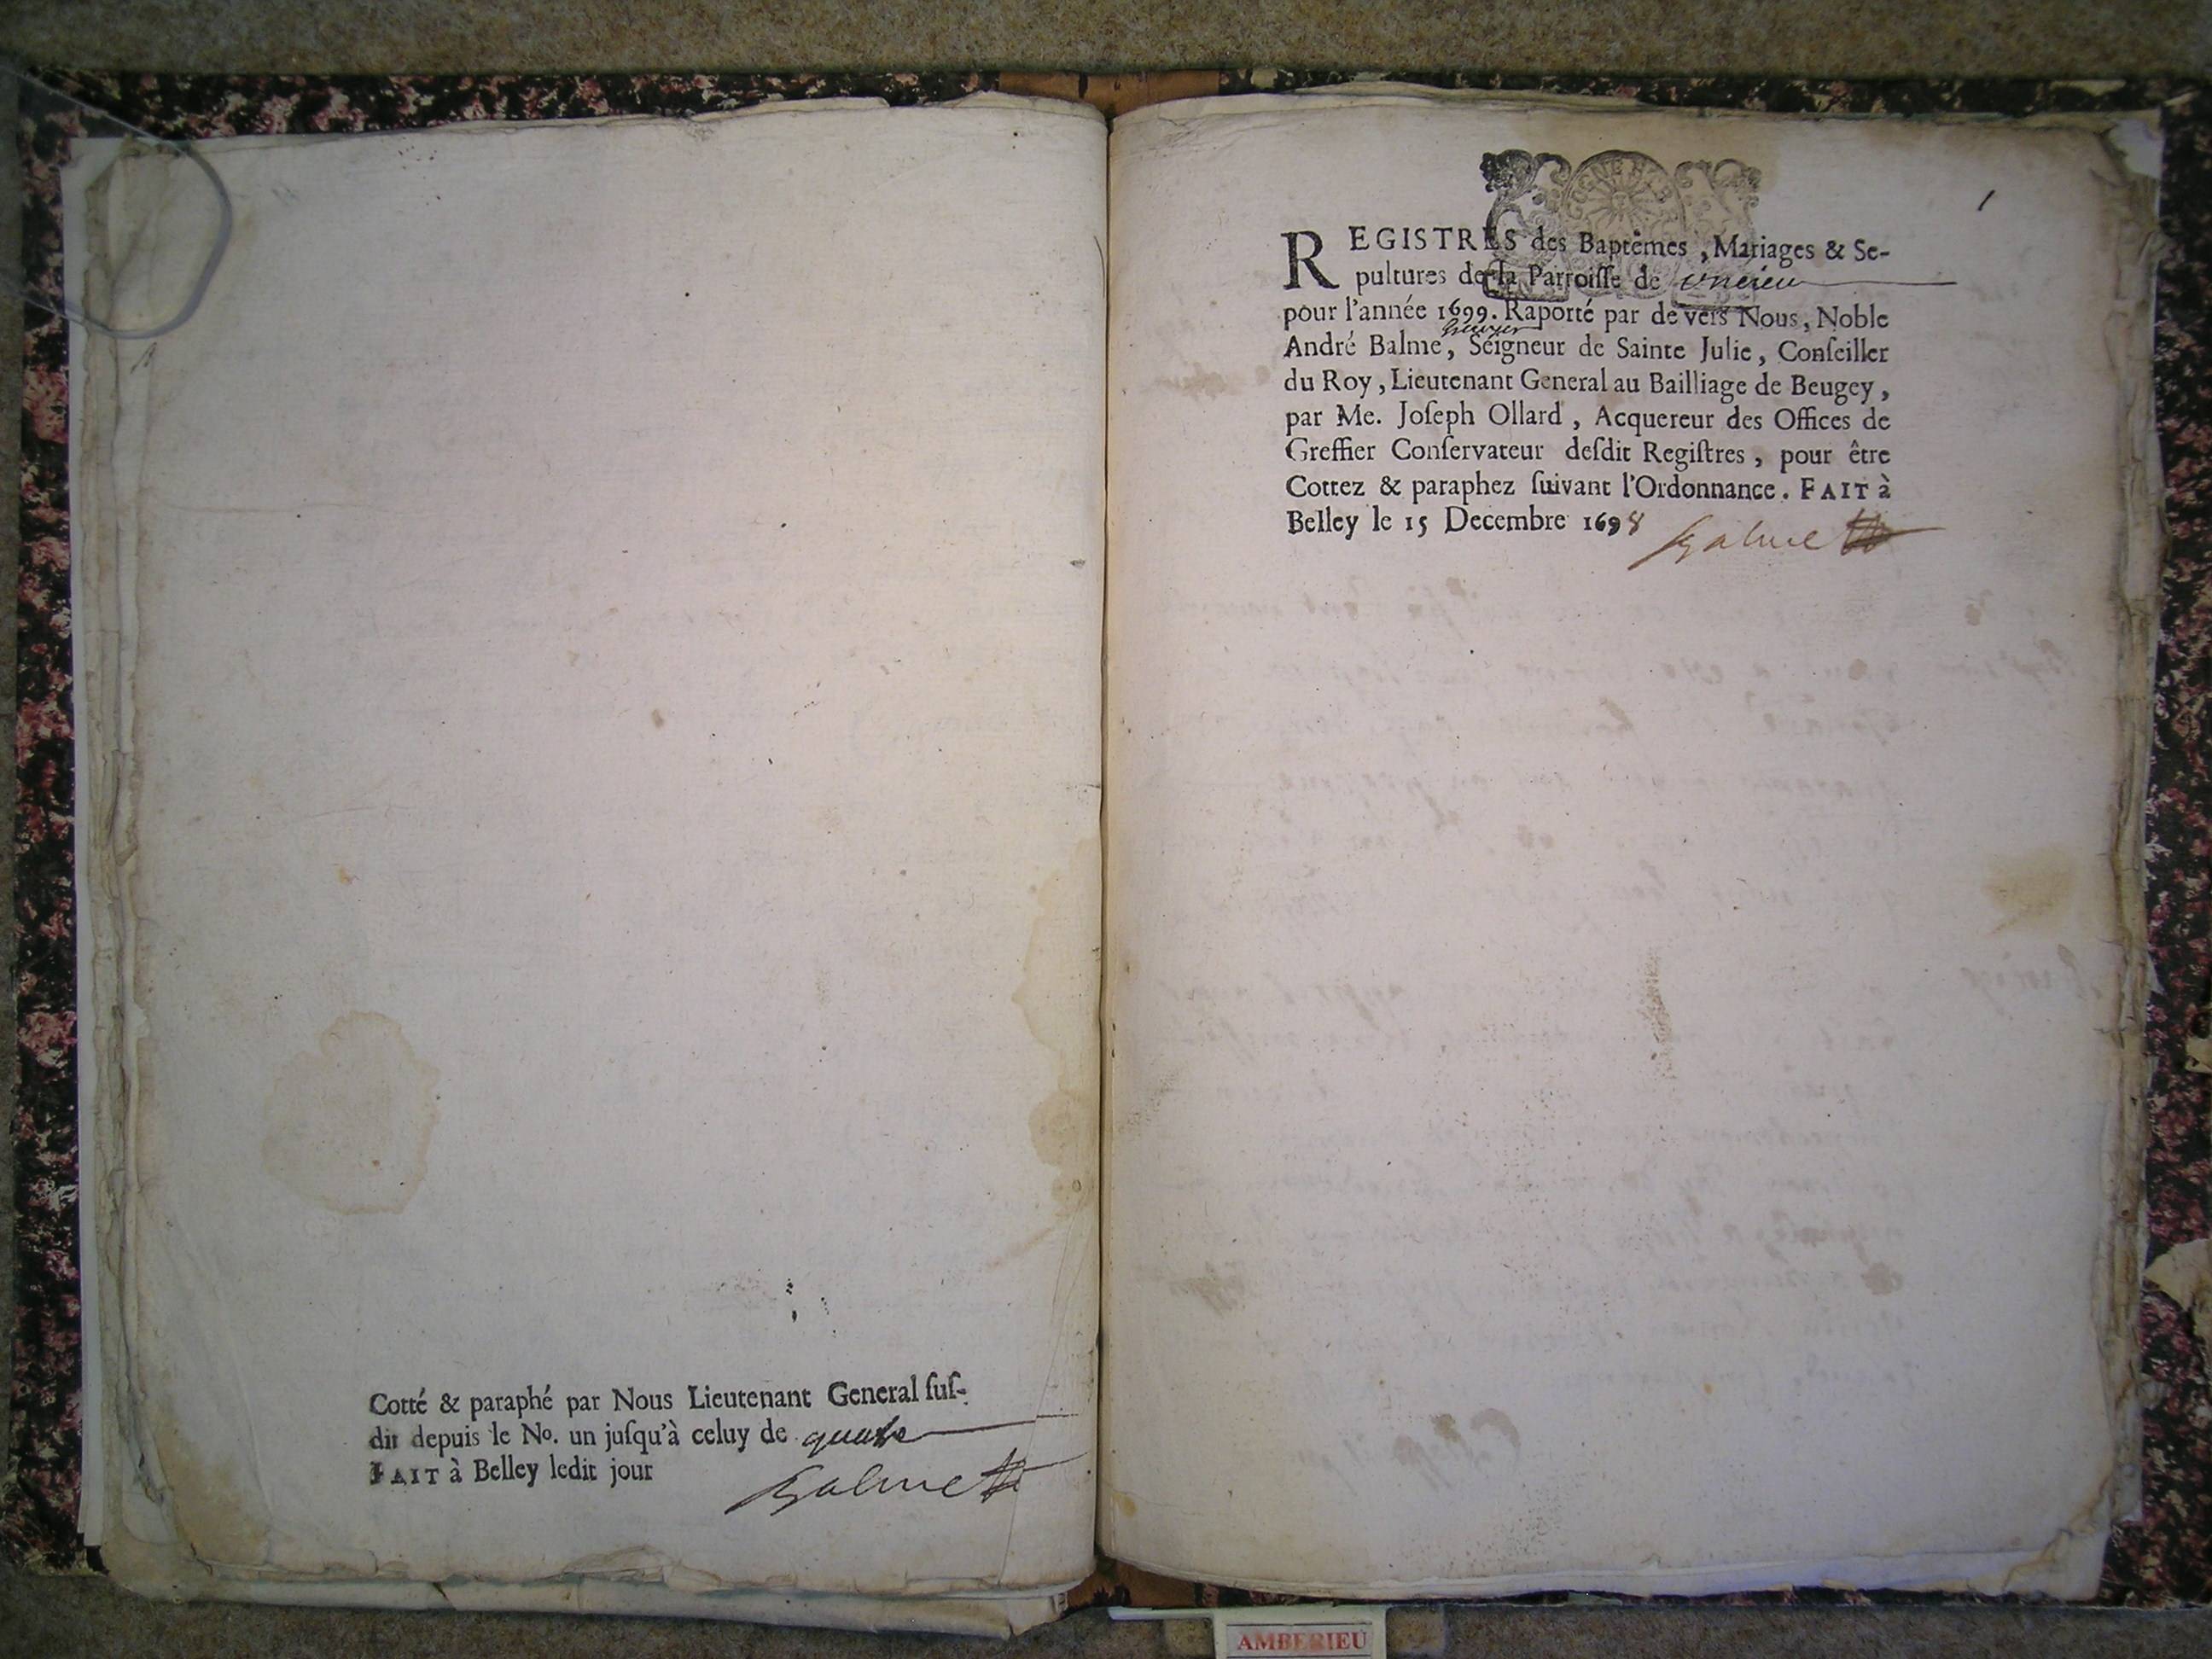 Cotté & paraphé par Nous Lieutenant General suſ-
dit depuis le No. un juſqu'à celuy de quatre
FAIT à Belley ledit jour
Balme
1
REGISTRES des Baptêmes, Mariages & Se-
pultures de la Parroiſſe de
pour l'année 1699. Raporté par de vers Nous, Noble
André Balme, Seigneur de Sainte Julie, Conſeiller
du Roy, Lieutenant General au Bailliage de Beugey,
par Me. Joſeph Ollard, Acquereur des Offices de
Greffier Conſervateur deſdit Regiſtres, pour être
Cottez & paraphez ſuivant l'Ordonnance. FAIT à
Belley le 15 Decembre 1698
Balme
AMBERIEU